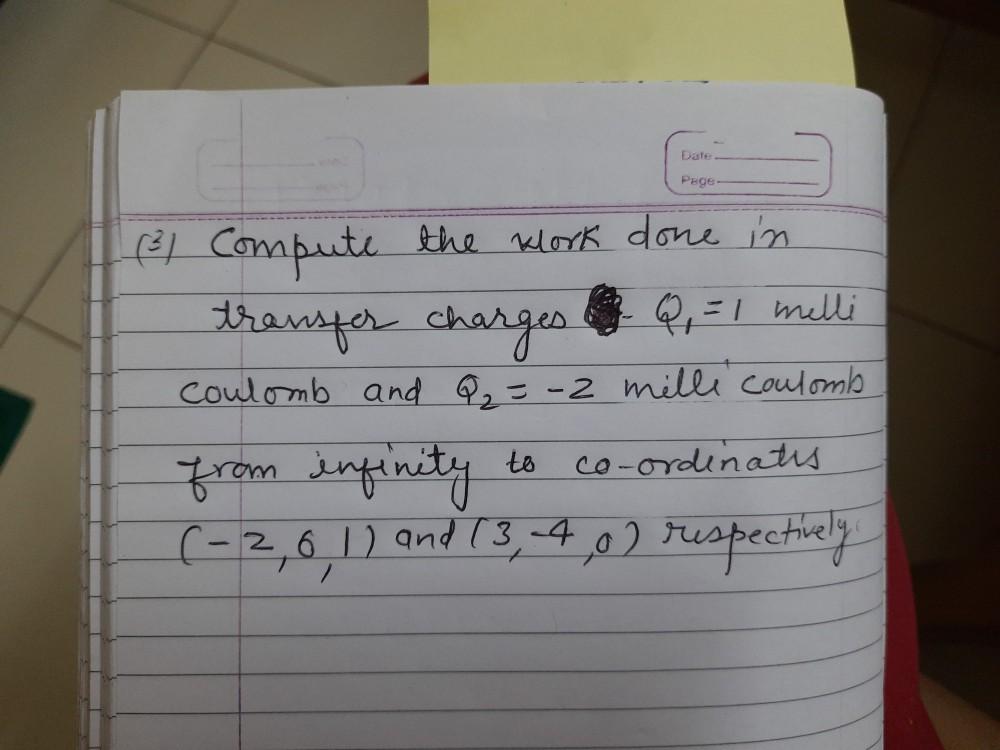 Date
Page
(3) Compute the work done in
transfer charges - Q₁ = 1 milli
coulomb and Q₂ = -2 milli coulomb
from infinity to co-ordinates
(-2, 6, 1) and (3, -4, 0) respectively.